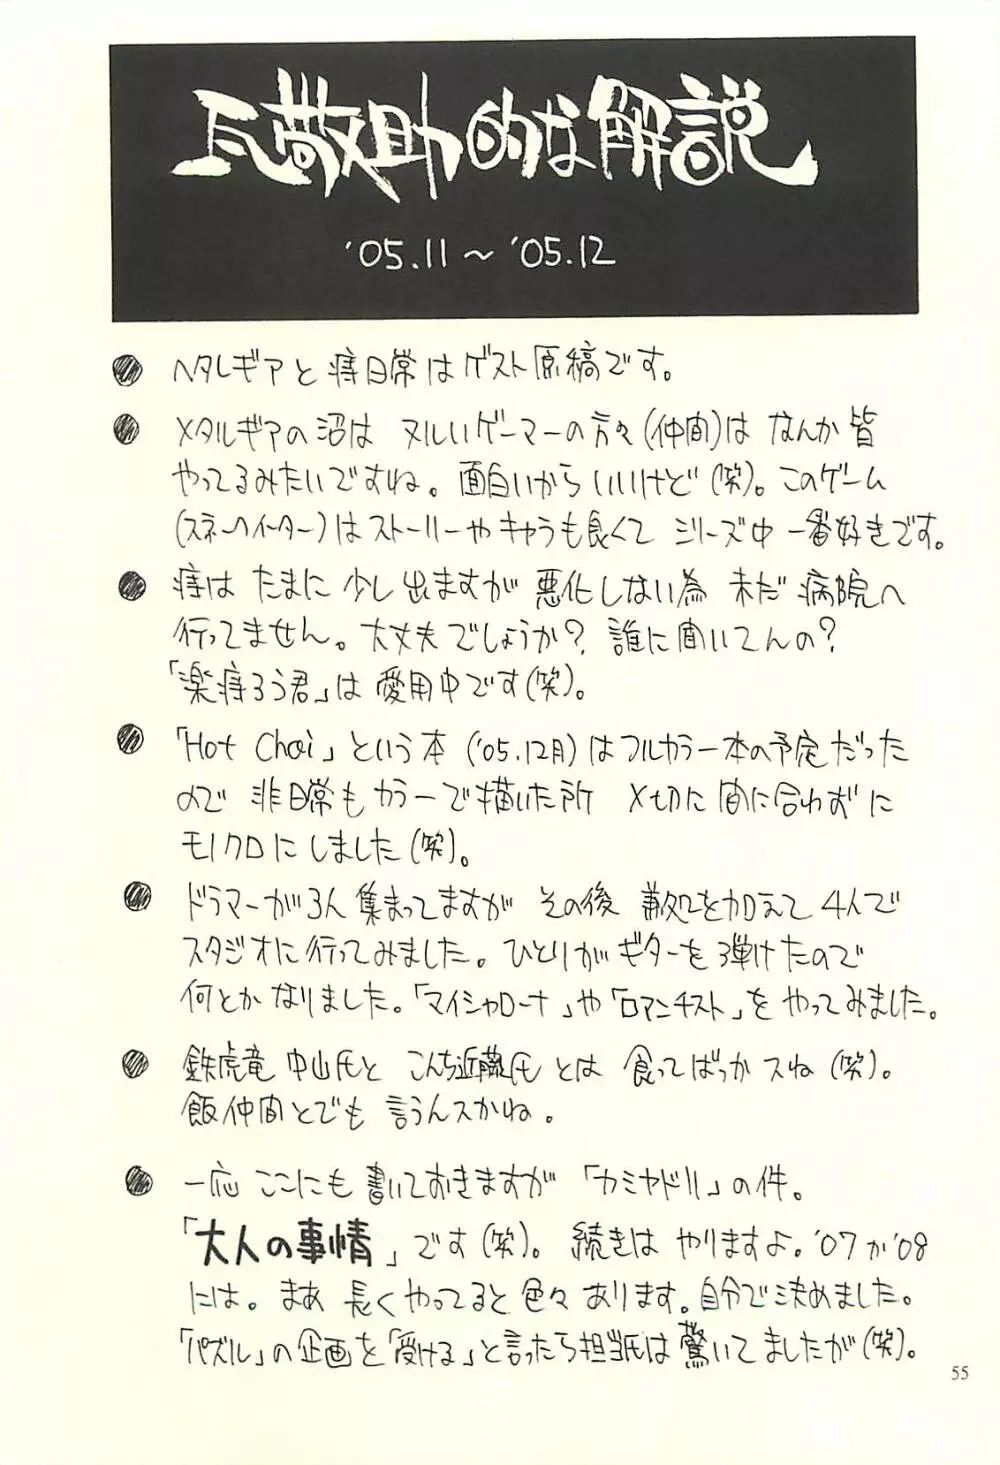 瓦敬助的な解説
'05.11～'05.12
● ヘタレギアと痔日常はゲスト原稿です。
● メタルギアの沼は ヌルいゲーマーの方々(仲間)は なんか皆
やってるみたいですね。面白いからいいけど(笑)。このゲーム
(スネークイーター)はストーリーやキャラも良くて シリーズ中 一番好きです。
● 痔は たまに 少し出ますが 悪化しない為 未だ 病院へ
行ってません。大丈夫でしょうか？誰に聞いてんの？
「楽痔ろう君」は 愛用中です(笑)。
● 「Hot Choi」という本('05.12月)はフルカラー本の予定だった
ので 非日常もカラーで描いた所 〆切に間に合わずに
モノクロにしました(笑)。
● ドラマーが3人集まってますが その後 兼処を加えて 4人で
スタジオに行ってみました。ひとりがギターを弾けたので
何とかなりました。「マイシャローナ」や「ロマンチスト」を やってみました。
● 鉄虎竜 中山氏と こんち近藤氏 とは 食ってばっかスね(笑)。
飯仲間とでも 言うんスかね。
● 一応 ここにも 書いておきますが 「カミヤドリ」の件。
「大人の事情」です(笑)。続きは やりますよ。'07か'08
には。まあ 長くやってると 色々 あります。自分で決めました。
「パズル」の企画を「受ける」と言ったら担当氏は驚いてましたが(笑)。
55